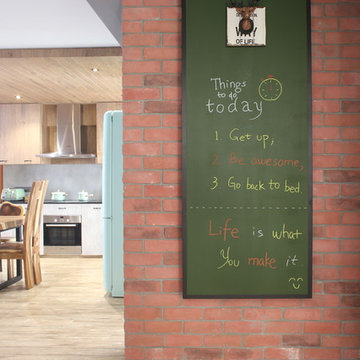 OF LIFE
Things
to do
today
1. Get up;
2. Be awesome,
3. Go back to bed.
Life is what
You make it